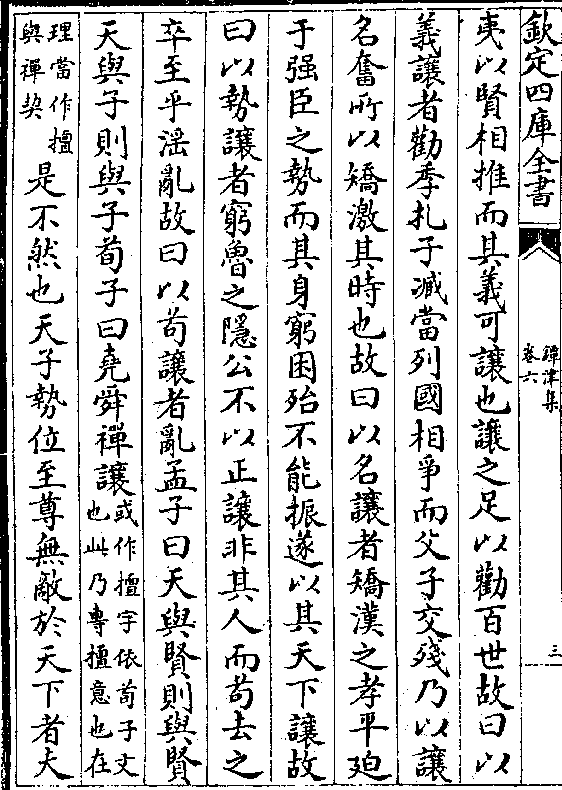 欽定四庫全書
鐔津集
卷六
三
夷以賢相推而其義可讓也讓之足以勸百世故曰以
義讓者勸季札子臧當列國相爭而父子交殘乃以讓
名奮所以矯激其時也故曰以名讓者矯漢之孝平廹
于强臣之勢而其身窮困殆不能振遂以其天下讓故
曰以勢讓者窮魯之隱公不以正讓非其人而苟去之
卒至乎滛亂故曰以苟讓者亂孟子曰天與賢則與賢
天與子則與子荀子曰堯舜禪讓或作擅字依荀子文
也此乃專擅意也在
理當作擅
與禪契
是不然也天子勢位至尊無敵於天下者夫